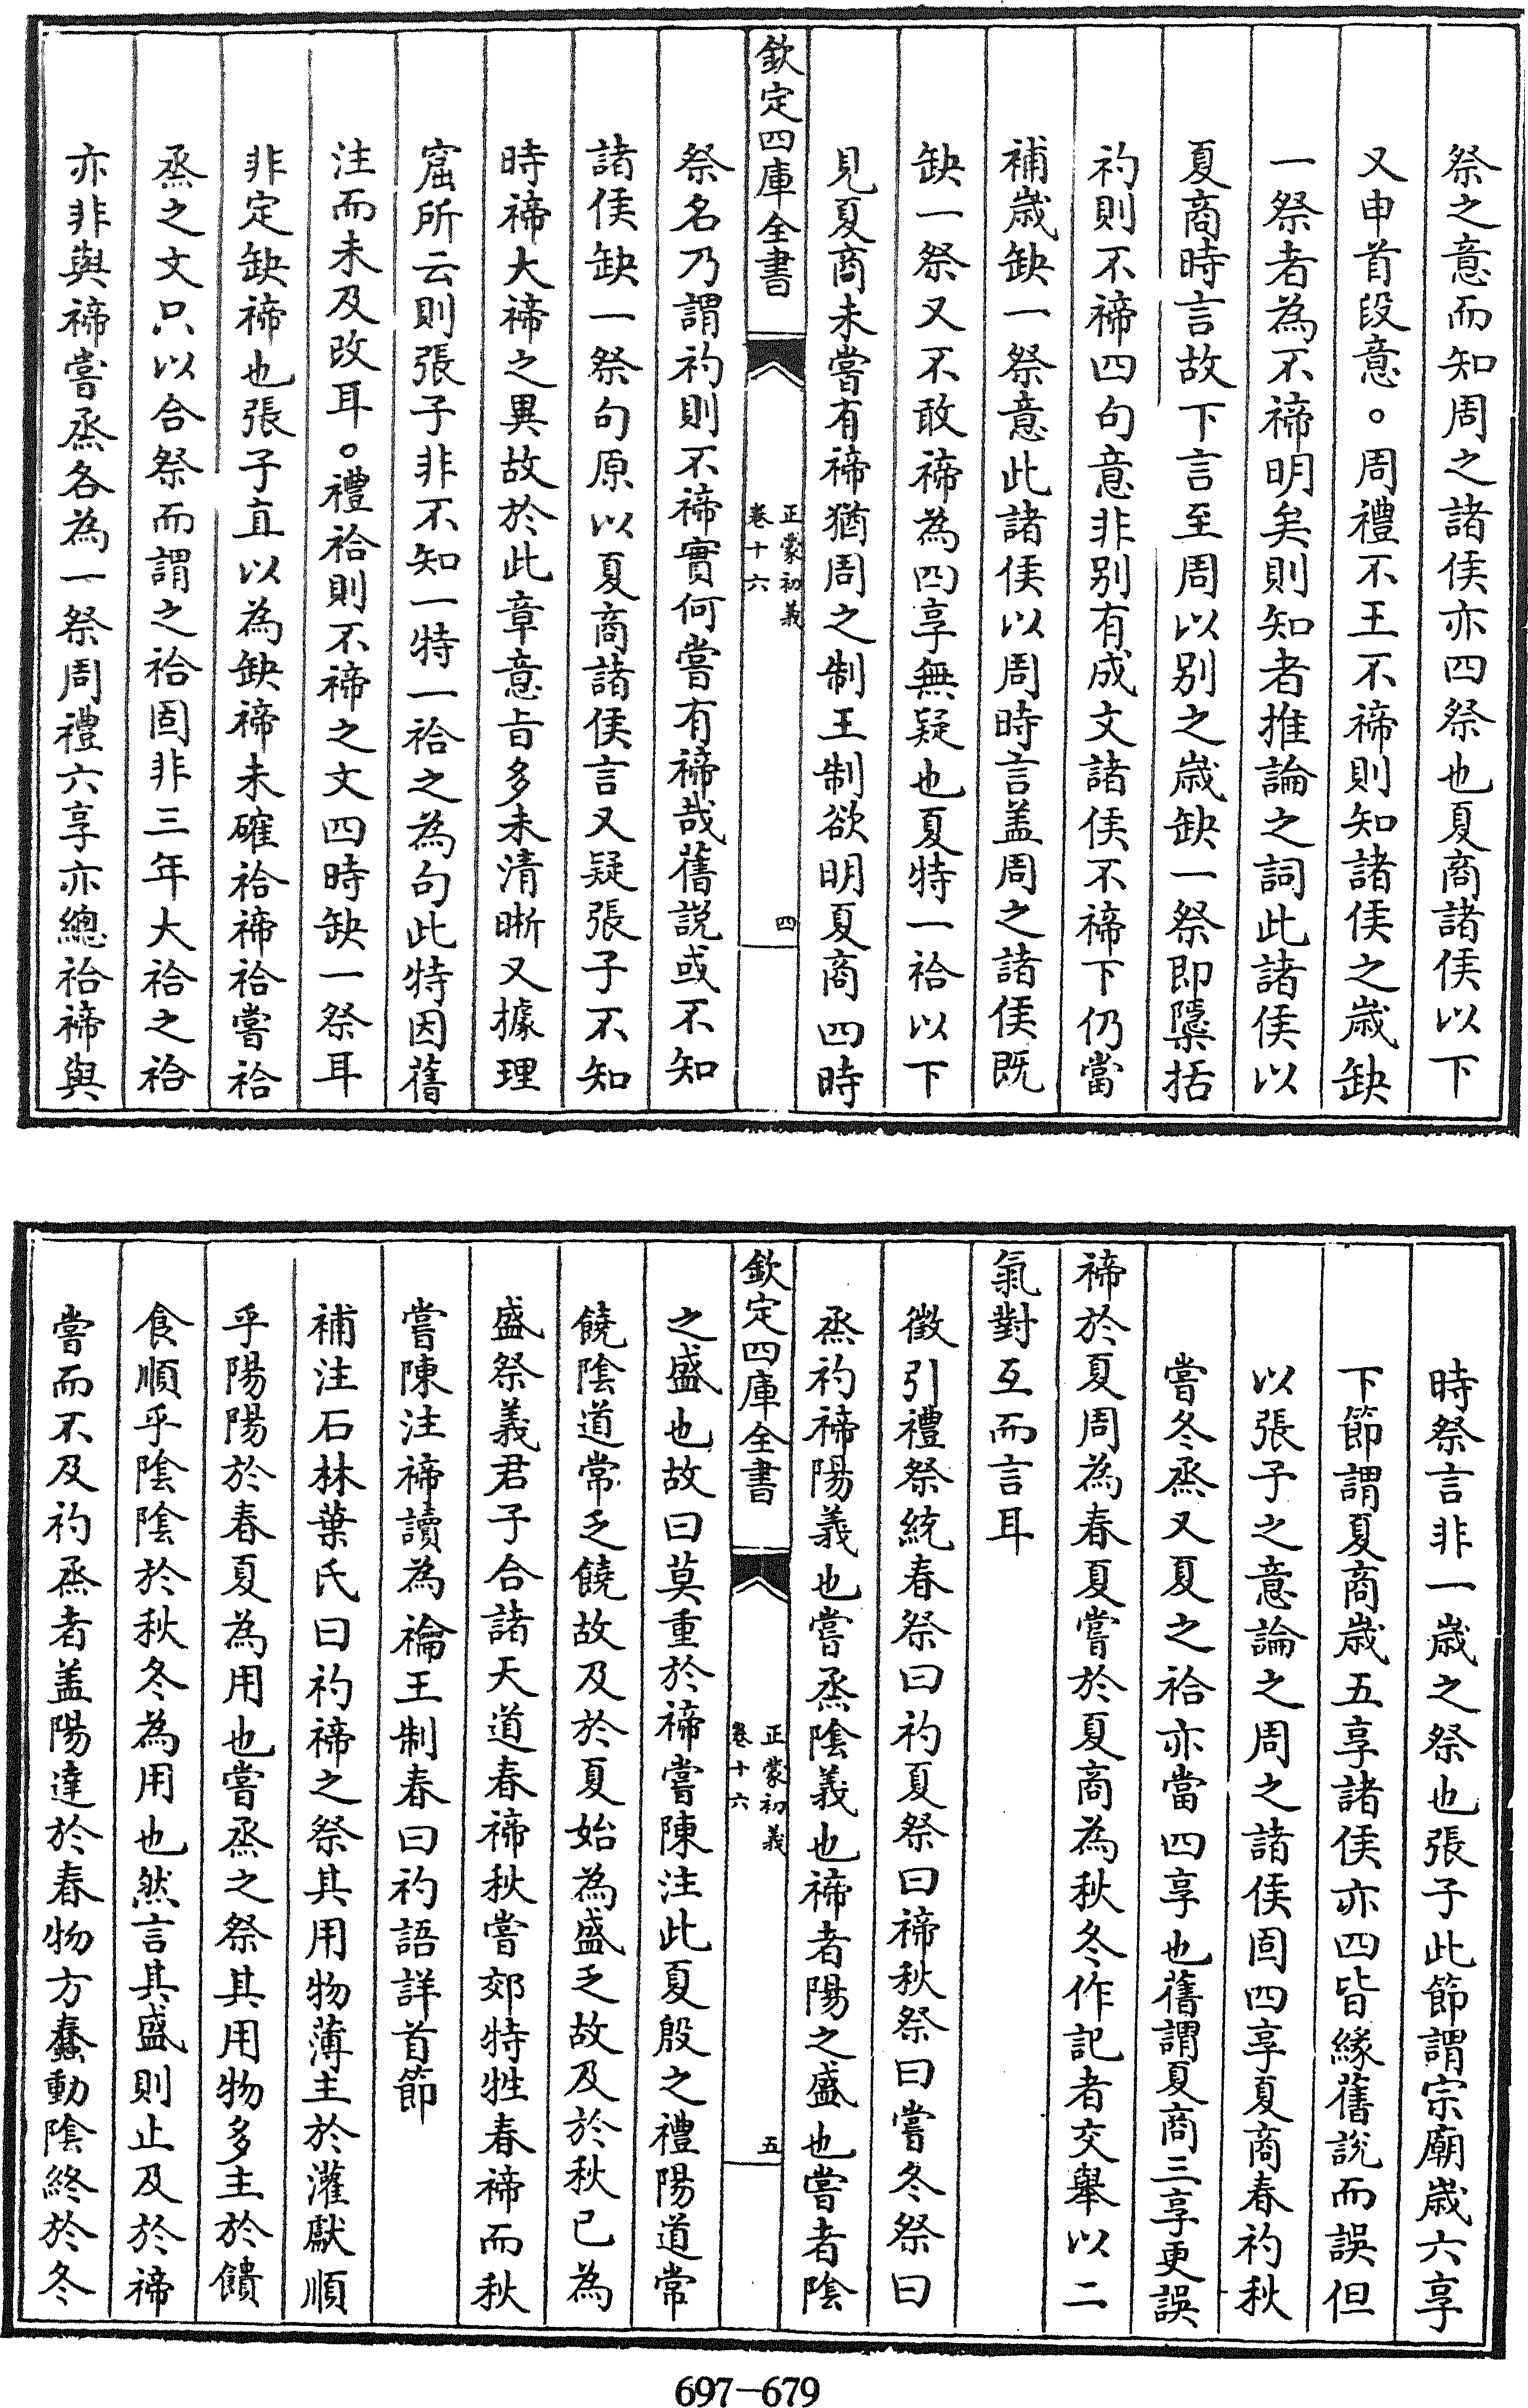 祭之意而知周之諸侯亦四祭也夏商諸侯以下
又申首段意。周禮不王不禘則知諸侯之歲缺
一祭者為不禘明矣則知者推論之詞此諸侯以
夏商時言故下言至周以别之歲缺一祭即隱括
礿則不禘四句意非别有成文諸侯不禘下仍當
補歲缺一祭意此諸侯以周時言盖周之諸侯既
缺一祭又不敢禘為四享無疑也夏特一祫以下
見夏商未嘗有禘猶周之制王制欲明夏商四時
欽定四庫全書
正蒙初義
卷十六
四
祭名乃謂礿則不禘實何嘗有禘哉舊説或不知
諸侯缺一祭句原以夏商諸侯言又疑張子不知
時禘大禘之異故於此章意旨多未清晰又據理
窟所云則張子非不知一特一祫之為句此特因舊
注而未及改耳。禮祫則不禘之文四時缺一祭耳
非定缺禘也張子直以為缺禘未確祫禘祫嘗祫
烝之文只以合祭而謂之祫固非三年大祫之祫
亦非與禘嘗烝各為一祭周禮六享亦總祫禘與
時祭言非一歲之祭也張子此節謂宗廟歲六享
下節謂夏商歲五享諸侯亦四皆緣舊說而誤但
以張子之意論之周之諸侯固四享夏商春礿秋
嘗冬烝又夏之祫亦當四享也舊謂夏商三享更誤
禘於夏周為春夏嘗於夏商為秋冬作記者交舉以二
氣對互而言耳
徵引禮祭統春祭曰礿夏祭曰禘秋祭曰嘗冬祭曰
烝礿禘陽義也嘗烝陰義也禘者陽之盛也嘗者陰
欽定四庫全書
正蒙初義
卷十六
五
之盛也故曰莫重於禘嘗陳注此夏殷之禮陽道常
饒陰道常乏饒故及於夏始為盛乏故及於秋已為
盛祭義君子合諸天道春禘秋嘗郊特牲春禘而秋
嘗陳注禘讀為禴王制春曰礿語詳首節
補注石林葉氏曰礿禘之祭其用物薄主於灌獻順
乎陽陽於春夏為用也嘗烝之祭其用物多主於饋
食順乎陰陰於秋冬為用也然言其盛則止及於禘
嘗而不及礿烝者盖陽達於春物方蠢動陰終於冬
697-679